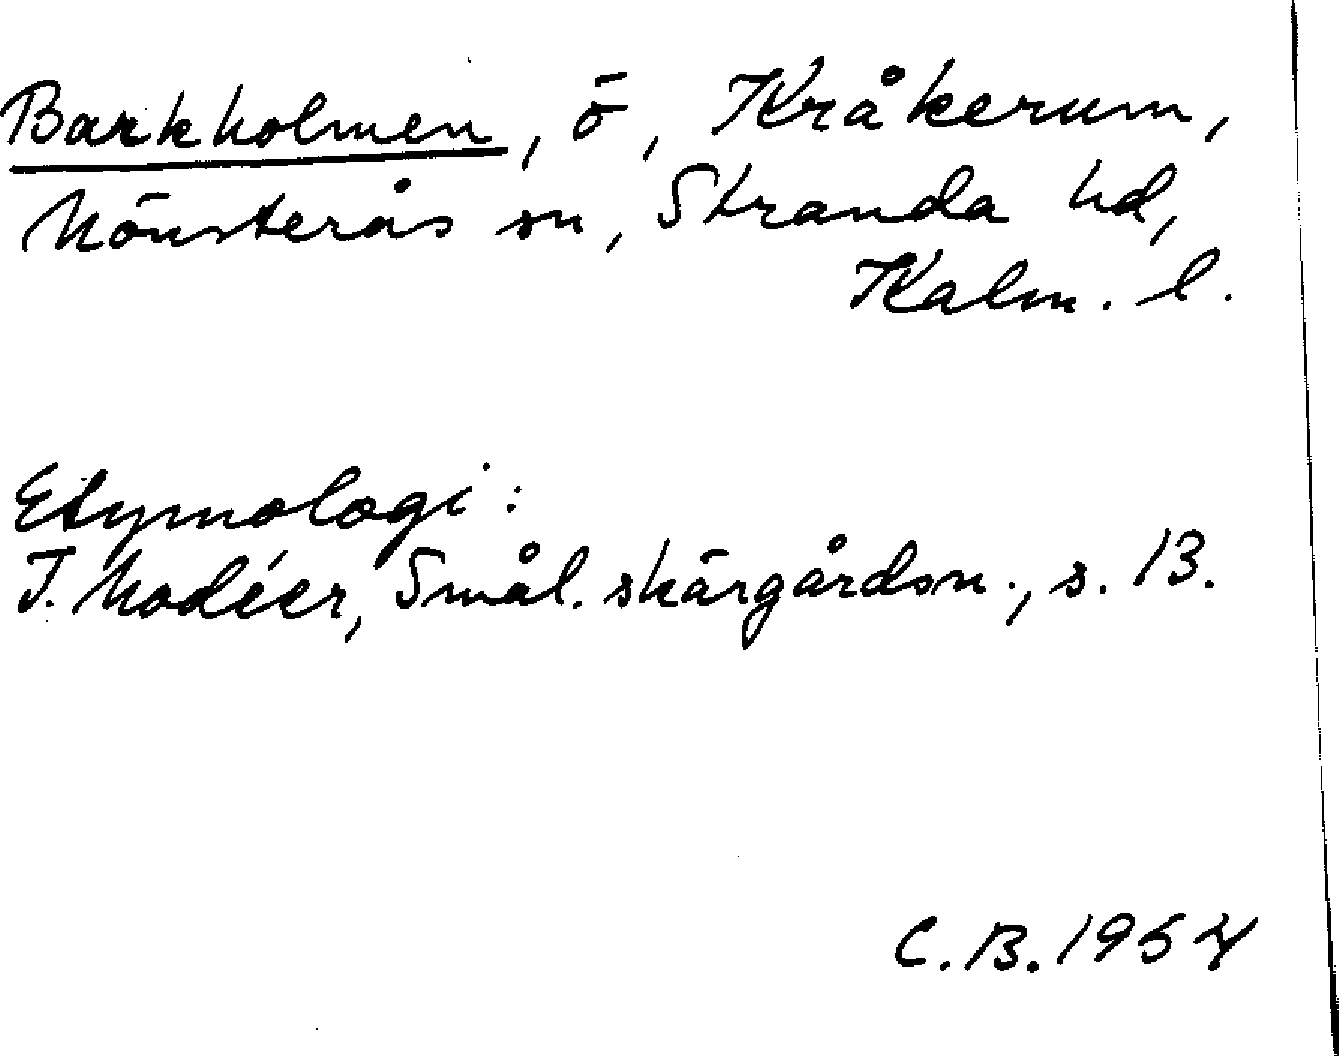 Barkholmen, ö, Kråkerum,
Mönsterås sn, Stranda hd,
Kalm. l.
Etymologi:
I. Modéer, Smål. skärgårdsn., s. 13.
C. B. 1954